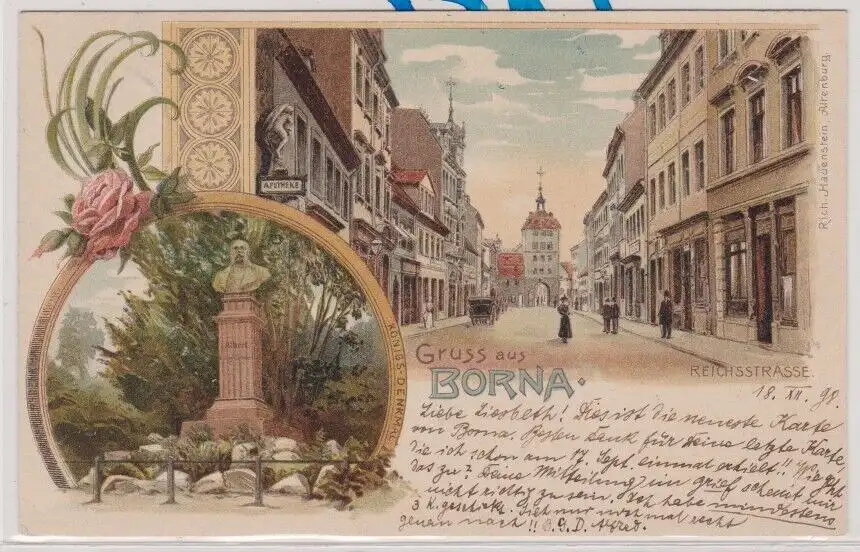 APOTHEKE
Albert
KÖNIGS-DENKMAL
Gruss aus
BORNA.
REICHSSTRASSE.
Rich. Hauenstein, Altenburg.
18. XII. 98.
Liebe Liesbeth! Dies ist die neueste Karte
von Borna. Besten Dank für deine letzte Karte,
die ich schon am 17. Sept. einmal erhielt!! Wie geht
das zu? Deine Mitteilung im grief scheint mir
nicht richtig zu sein. Ich habe mindestens
3 K. geschickt. Sieh nur noch mal recht
genau nach!! B. G. D. Alfred.